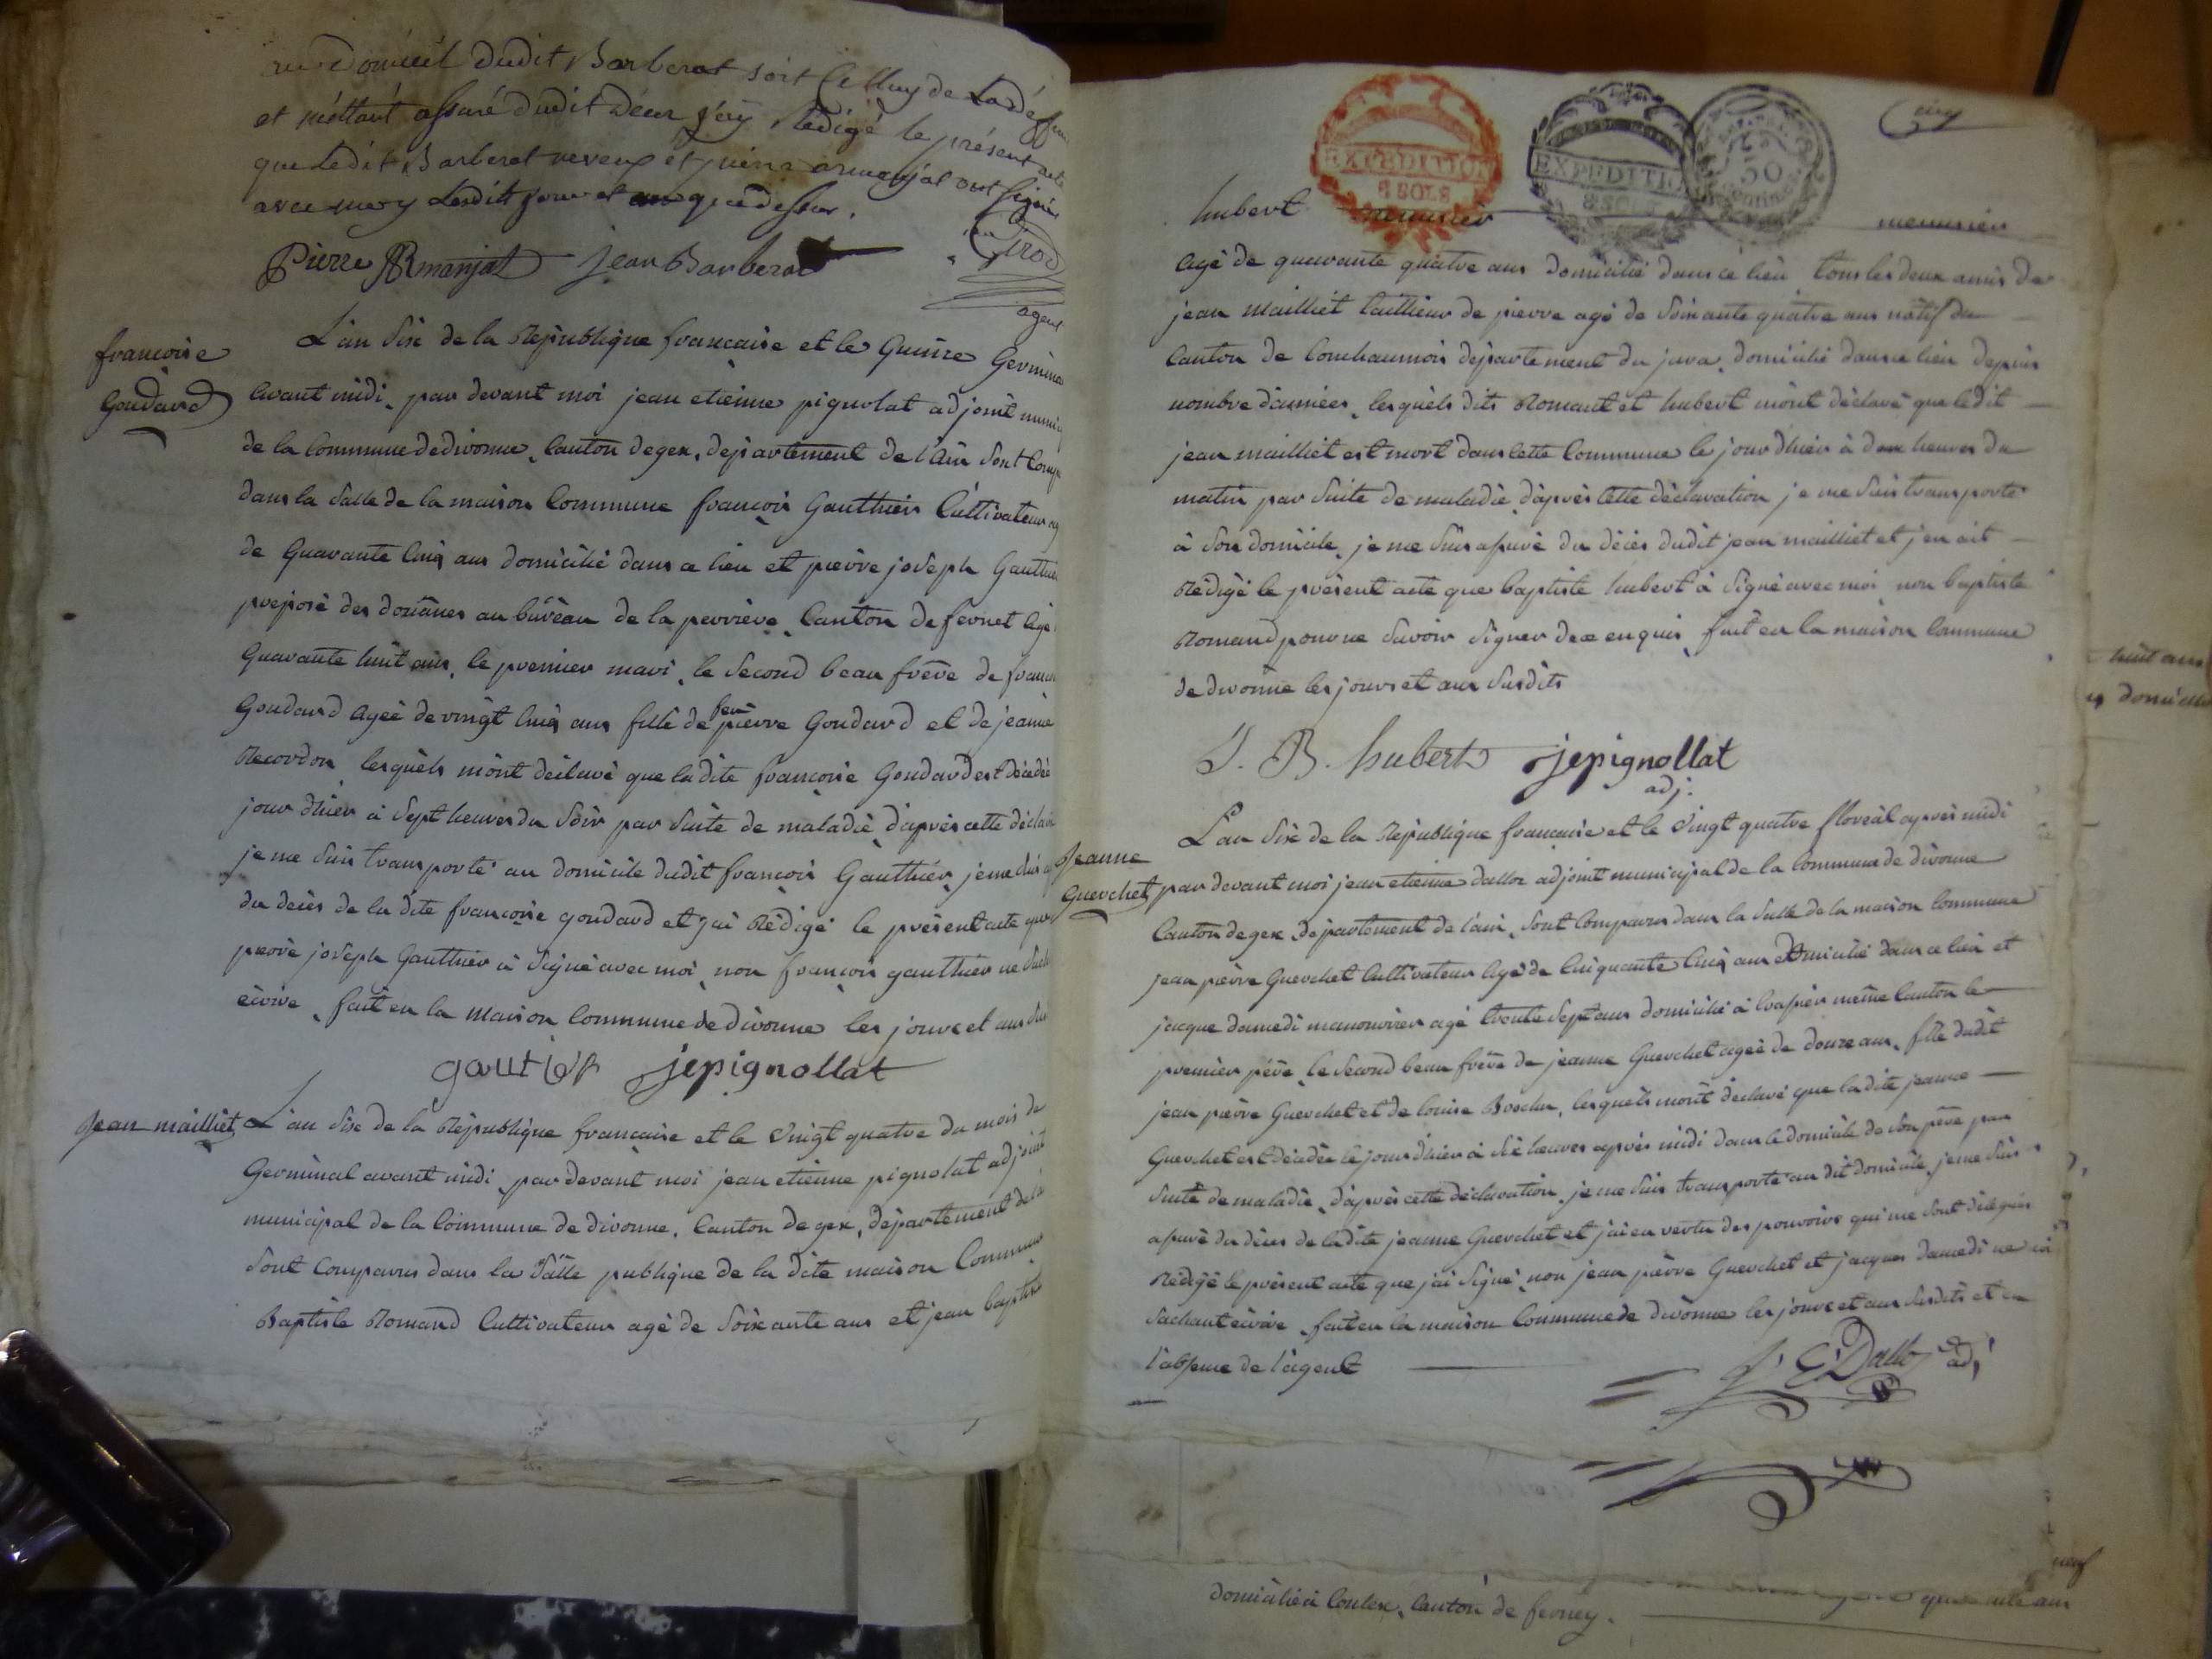 domicil dudit Barberat soit Celluy de La deffun
et métant assuré dudit Décer j'ay Rédigé le présent acte
que Ledit Barberat neveux et pierre armanjat ont signés
avec moy Lesdits jour et an que dessus.
Pierre ARmanjat Jean Barberat Girod
agent
francoise
Goudard
L'an Six de la République francaise et le Quinze Germina
avant midi, par devant moi jean etienne pignolat adjoint munici
de la Commune de divonne, Canton de gex, departement de l'Ain Sont Comp
dans la Salle de la maison Commune francois Gauthier Cultivateur ag
de Quarante Cinq ans domicilié dans ce lieu et pierre joseph Gauthier
preposé des douanes au bureau de la perriere, Canton de fernet agé
Quarante huit ans, le premier mari, le Second beau frère de francoi
Goudard Ageé de vingt Cinq ans fille de feu pierre Goudard et de jeanne
Recordon lesquels m'ont déclaré que ladite francoise Goudard est décédée
jour d'hier à Sept heures du Soir par Suite de maladie d'après cette déclara
je me Suis transporté au domicile dudit francois Gauthier, je me Suis a
du deces de la dite francoise goudard et j'ai Rédigé le présent acte que
pierre joseph Gauthier à Signé avec moi, non francois gauthier ne Sach
ecrire, fait en la Maison Commune de Divonne les jours et ans Sus
gautier jepignollat
Jean mailliet
L'an Six de la République francaise et le Vingt quatre du mois de
Germinal avant midi par devant moi jean etienne pignolat adjoint
municipal de la Commune de divonne, Canton de gex, département de l
Sont Comparus dans la Salle publique de la dite maison Commune
Baptiste Romand Cultivateur agé de Soixante ans et jean baptiste
Cinq
EXPEDITION
8 SOLS
EXPEDITION
8 SOLS
50
Centimes
hubert menuisier menuisier
agé de quarante quatre ans domicilié dans ce lieu tous les deux amis de
jean Mailliet tailleur de pierre agé de Soixante quatre ans natif du
Canton de Conchaumois departement du jura, domicilié dans ce lieu depuis
nombre d'années, lesquels dits Romant et hubert m'ont déclaré que ledit
jean mailliet est mort dans cette Commune le jour d'hier à deux heures du
matin par Suite de maladie d'après cette déclaration je me Suis transporté
à Son domicile, je me Suis assuré du décès dudit jean mailliet et j'en ait
Rédigé le présent acte que baptiste hubert à Signé avec moi non baptiste
Romand pour ne Savoir Signer de ce enquis, fait en la maison Commune
de divonne les jours et ans Susdits
J. B. hubert jepignollat
adj.
Jeanne
Guerchet
L'an Six de la République francaise et le Vingt quatre floréal après midi
par devant moi jean etienne dalloz adjoint municipal de la Commune de divonne
Canton de gex departement de l'ain, Sont Comparus dans la Salle de la maison Commune
jean pierre Guerchet Cultivateur Agé de Cinquante Cinq ans domicilié dans ce lieu et
jacque damedi manouvrier agé trente Sept ans domicilié à Crassier même Canton le
premier père, le Second beau frère de jeanne Guerchet ageé de douze ans, fille dudit
jean pierre Guerchet et de louise Boschu, lesquels m'ont déclaré que la dite jeanne
Guerchet est décédée le jour d'hier à Six heures après midi dans le domicile de Son père par
Suite de maladie, d'après cette déclaration, je me Suis transporté au dit domicile, je me Suis
assuré du décès de ladite jeanne Guerchet et j'ai en vertu des pouvoirs qui me Sont délégués
Rédigé le présent acte que j'ai Signé, non jean pierre Guerchet et jacques damedi ne
Sachant écrire, fait en la maison Commune de divonne les jours et ans Susdits et en
l'absence de l'agent
J. E Dalloz adj
huit ans
domicilié
neuf
domicilié à Coulex, Canton de ferney. quarante ans